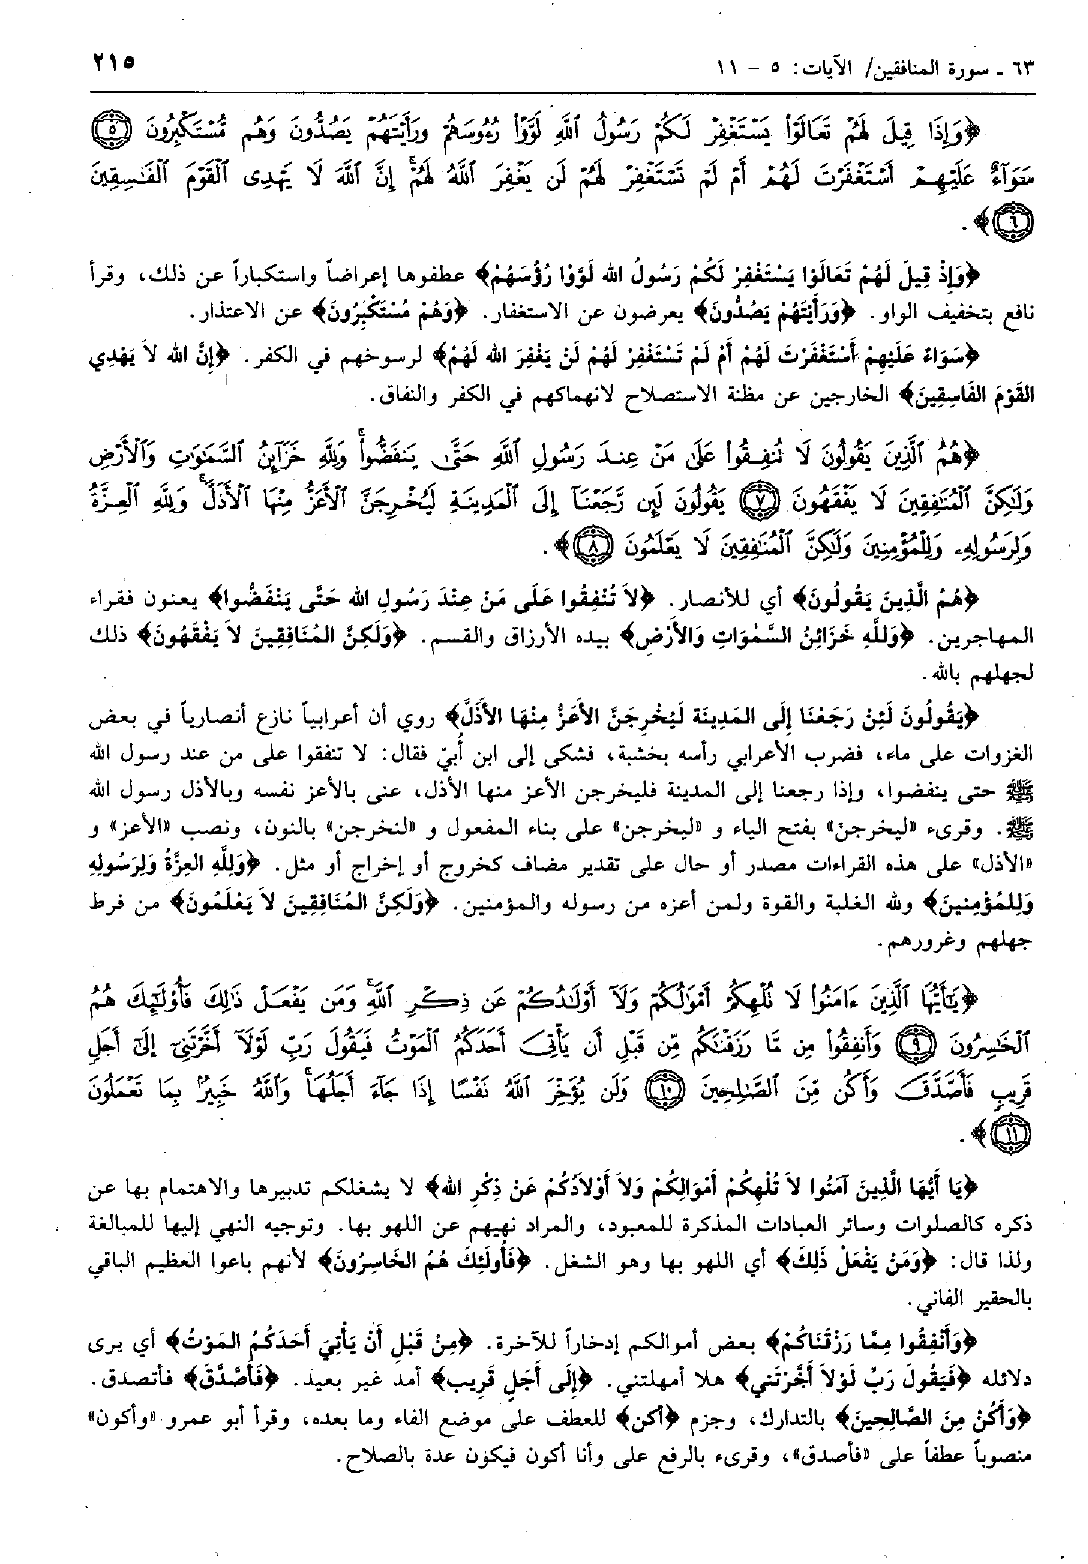 ٦٣ ـ سورة المنافقين/ الآيات: ٥ ـ ١١
٢١٥
﴿وَإِذَا قِيلَ لَهُمْ تَعَالَوْا يَسْتَغْفِرْ لَكُمْ رَسُولُ اللَّهِ لَوَّوْا رُءُوسَهُمْ وَرَأَيْتَهُمْ يَصُدُّونَ وَهُم مُّسْتَكْبِرُونَ ٥
سَوَآءٌ عَلَيْهِمْ أَسْتَغْفَرْتَ لَهُمْ أَمْ لَمْ تَسْتَغْفِرْ لَهُمْ لَن يَغْفِرَ اللَّهُ لَهُمْ إِنَّ اللَّهَ لَا يَهْدِى الْقَوْمَ الْفَاسِقِينَ
٦﴾.
﴿وَإِذْ قِيلَ لَهُمْ تَعَالَوْا يَسْتَغْفِرْ لَكُمْ رَسُولُ الله لَوَّوْا رُؤُسَهُمْ﴾ عطفوها إعراضاً واستكباراً عن ذلك، وقرأ
نافع بتخفيف الواو. ﴿وَرَأَيْتَهُمْ يَصُدُّونَ﴾ يعرضون عن الاستغفار. ﴿وَهُمْ مُسْتَكْبِرُونَ﴾ عن الاعتذار.
﴿سَوَاءٌ عَلَيْهِمْ أَسْتَغْفَرْتَ لَهُمْ أَمْ لَمْ تَسْتَغْفِرْ لَهُمْ لَنْ يَغْفِرَ الله لَهُمْ﴾ لرسوخهم في الكفر. ﴿إِنَّ الله لاَ يَهْدِي
القَوْمَ الفَاسِقِينَ﴾ الخارجين عن مظنة الاستصلاح لانهماكهم في الكفر والنفاق.
﴿هُمُ الَّذِينَ يَقُولُونَ لَا تُنفِقُوا عَلَىٰ مَنْ عِندَ رَسُولِ اللَّهِ حَتَّىٰ يَنفَضُّوا وَلِلَّهِ خَزَآئِنُ السَّمَٰوَٰتِ وَالْأَرْضِ
وَلَٰكِنَّ الْمُنَافِقِينَ لَا يَفْقَهُونَ ٧ يَقُولُونَ لَئِن رَّجَعْنَآ إِلَى الْمَدِينَةِ لَيُخْرِجَنَّ الْأَعَزُّ مِنْهَا الْأَذَلَّ وَلِلَّهِ الْعِزَّةُ
وَلِرَسُولِهِ وَلِلْمُؤْمِنِينَ وَلَٰكِنَّ الْمُنَافِقِينَ لَا يَعْلَمُونَ ٨﴾.
﴿هُمُ الَّذِينَ يَقُولُونَ﴾ أي للأنصار. ﴿لاَ تُنْفِقُوا عَلَى مَنْ عِنْدَ رَسُولِ الله حَتَّى يَنْفَضُّوا﴾ يعنون فقراء
المهاجرين. ﴿وَللَّهِ خَزَائِنُ السَّمٰوَاتِ وَالأَرْضِ﴾ بيده الأرزاق والقسم. ﴿وَلَكِنَّ المُنَافِقِينَ لاَ يَفْقَهُونَ﴾ ذلك
لجهلهم بالله.
﴿يَقُولُونَ لَئِنْ رَجَعْنَا إِلَى المَدِينَة لَيُخْرِجَنَّ الأَعَزُّ مِنْهَا الأَذَلَّ﴾ روي أن أعرابياً نازع أنصارياً في بعض
الغزوات على ماء، فضرب الأعرابي رأسه بخشبة، فشكى إلى ابن أُبيّ فقال: لا تنفقوا على من عند رسول الله
ﷺ حتى ينفضوا، وإذا رجعنا إلى المدينة فليخرجن الأعز منها الأذل، عنى بالأعز نفسه وبالأذل رسول الله
ﷺ. وقرىء «ليخرجن» بفتح الياء و «ليخرجن» على بناء المفعول و «لنخرجن» بالنون، ونصب «الأعز» و
«الأذل» على هذه القراءات مصدر أو حال على تقدير مضاف كخروج أو إخراج أو مثل. ﴿وَلِلَّهِ العِزَّةُ وَلِرَسُولِهِ
وَلِلمُؤْمِنِينَ﴾ ولله الغلبة والقوة ولمن أعزه من رسوله والمؤمنين. ﴿وَلَكِنَّ المُنَافِقِينَ لاَ يَعْلَمُونَ﴾ من فرط
جهلهم وغرورهم.
﴿يَٰٓأَيُّهَا الَّذِينَ ءَامَنُوا لَا تُلْهِكُمْ أَمْوَالُكُمْ وَلَآ أَوْلَادُكُمْ عَن ذِكْرِ اللَّهِ وَمَن يَفْعَلْ ذَٰلِكَ فَأُو۟لَٰٓئِكَ هُمُ
الْخَاسِرُونَ ٩ وَأَنفِقُوا مِن مَّا رَزَقْنَاكُم مِّن قَبْلِ أَن يَأْتِىَ أَحَدَكُمُ الْمَوْتُ فَيَقُولَ رَبِّ لَوْلَآ أَخَّرْتَنِىٓ إِلَىٰٓ أَجَلٍ
قَرِيبٍ فَأَصَّدَّقَ وَأَكُن مِّنَ الصَّالِحِينَ ١٠ وَلَن يُؤَخِّرَ اللَّهُ نَفْسًا إِذَا جَآءَ أَجَلُهَا وَاللَّهُ خَبِيرٌ بِمَا تَعْمَلُونَ
١١﴾.
﴿يَا أَيُّهَا الَّذِينَ آمَنُوا لاَ تُلْهِكُمْ أَمْوَالِكُمْ وَلاَ أَوْلاَدُكُمْ عَنْ ذِكْرِ الله﴾ لا يشغلكم تدبيرها والاهتمام بها عن
ذكره كالصلوات وسائر العبادات المذكرة للمعبود، والمراد نهيهم عن اللهو بها. وتوجيه النهي إليها للمبالغة
ولذا قال: ﴿وَمَنْ يَفْعَلْ ذَلِكَ﴾ أي اللهو بها وهو الشغل. ﴿فَأُولَئِكَ هُمُ الخَاسِرُونَ﴾ لأنهم باعوا العظيم الباقي
بالحقير الفاني.
﴿وَأَنْفِقُوا مِمَّا رَزَقْنَاكُمْ﴾ بعض أموالكم إدخاراً للآخرة. ﴿مِنْ قَبْلِ أَنْ يَأْتِيَ أَحَدَكُمُ المَوْتُ﴾ أي يرى
دلائله ﴿فَيَقُولَ رَبِّ لَوْلاَ أَخَّرْتَني﴾ هلا أمهلتني. ﴿إِلَى أَجَلٍ قَرِيبٍ﴾ أمد غير بعيد. ﴿فَأَصَّدَّقَ﴾ فأتصدق.
﴿وَأَكُنْ مِنَ الصَّالِحِينَ﴾ بالتدارك، وجزم ﴿أكن﴾ للعطف على موضع الفاء وما بعده، وقرأ أبو عمرو «وأكون»
منصوباً عطفاً على «فأصدق»، وقرىء بالرفع على وأنا أكون فيكون عدة بالصلاح.